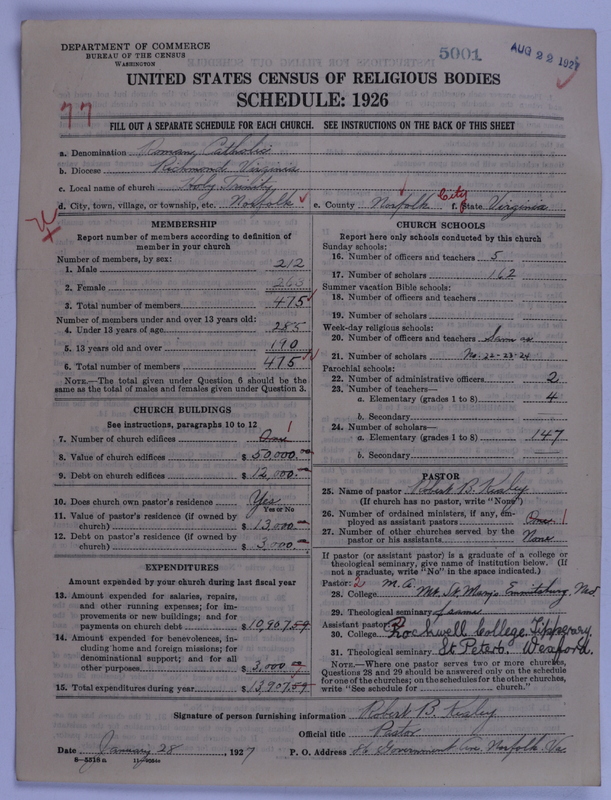 DEPARTMENT OF COMMERCE
BUREAU OF THE CENSUS
WASHINGTON
5001
AUG 22 1927
UNITED STATES CENSUS OF RELIGIOUS BODIES
SCHEDULE: 1926
77
FILL OUT A SEPARATE SCHEDULE FOR EACH CHURCH. SEE INSTRUCTIONS ON THE BACK OF THIS SHEET
a. Denomination Roman Catholic
b. Diocese Richmond Virginia
c. Local name of church Holy Trinity
d. City, town, village, or township, etc. Norfolk e. County Norfolk City f. State Virginia
MEMBERSHIP
Report number of members according to definition of
member in your church
Number of members, by sex:
1. Male 212
2. Female 263
3. Total number of members 475
Number of members under and over 13 years old:
4. Under 13 years of age 285
5. 13 years old and over 190
6. Total number of members 475
NOTE.—The total given under Question 6 should be
the same as the total of males and females given under Question 3.
CHURCH BUILDINGS
See instructions, paragraphs 10 to 12
7. Number of church edifices One 1
8. Value of church edifices $ 50,000.
9. Debt on church edifices $ 12,000.
10. Does church own pastor's residence Yes
Yes or No
11. Value of pastor's residence (if owned by
church) $ 13,000.
12. Debt on pastor's residence (if owned by
church) $ 3,000.
EXPENDITURES
Amount expended by your church during last fiscal year
13. Amount expended for salaries, repairs,
and other running expenses; for im-
provements or new buildings; and for
payments on church debt $ 10,907.59
14. Amount expended for benevolences, in-
cluding home and foreign missions; for
denominational support; and for all
other purposes $ 3,000
15. Total expenditures during year $ 13,907.59
CHURCH SCHOOLS
Report here only schools conducted by this church
Sunday schools:
16. Number of officers and teachers 5
17. Number of scholars 162
Summer vacation Bible schools:
18. Number of officers and teachers
19. Number of scholars
Week-day religious schools:
20. Number of officers and teachers Sam as
21. Number of scholars No. 22-23-24
Parochial schools:
22. Number of administrative officers 2
23. Number of teachers—
a. Elementary (grades 1 to 8) 4
b. Secondary
24. Number of scholars—
a. Elementary (grades 1 to 8) 147
b. Secondary
PASTOR
25. Name of pastor Robert B. Kealey
(If church has no pastor, write "None")
26. Number of ordained ministers, if any, em-
ployed as assistant pastors One 1
27. Number of other churches served by the
pastor or his assistants None
If pastor (or assistant pastor) is a graduate of a college or
theological seminary, give name of institution below. (If
not a graduate, write "No" in the space indicated.)
Pastor: 2 M.A.
28. College Mt. St. Mary's Emmitsburg, Md
29. Theological seminary same
Assistant pastor:
30. College Rockwell College, Tipperary.
31. Theological seminary St Peter's. Wexford.
NOTE.—Where one pastor serves two or more churches,
Questions 28 and 29 should be answered only on the schedule
for one of the churches; on the schedules for the other churches,
write "See schedule for church."
Signature of person furnishing information Robert B. Kealey
Official title Pastor
Date January 28, 1927 P. O. Address 86 Government Ave. Norfolk. Va
8—5516a